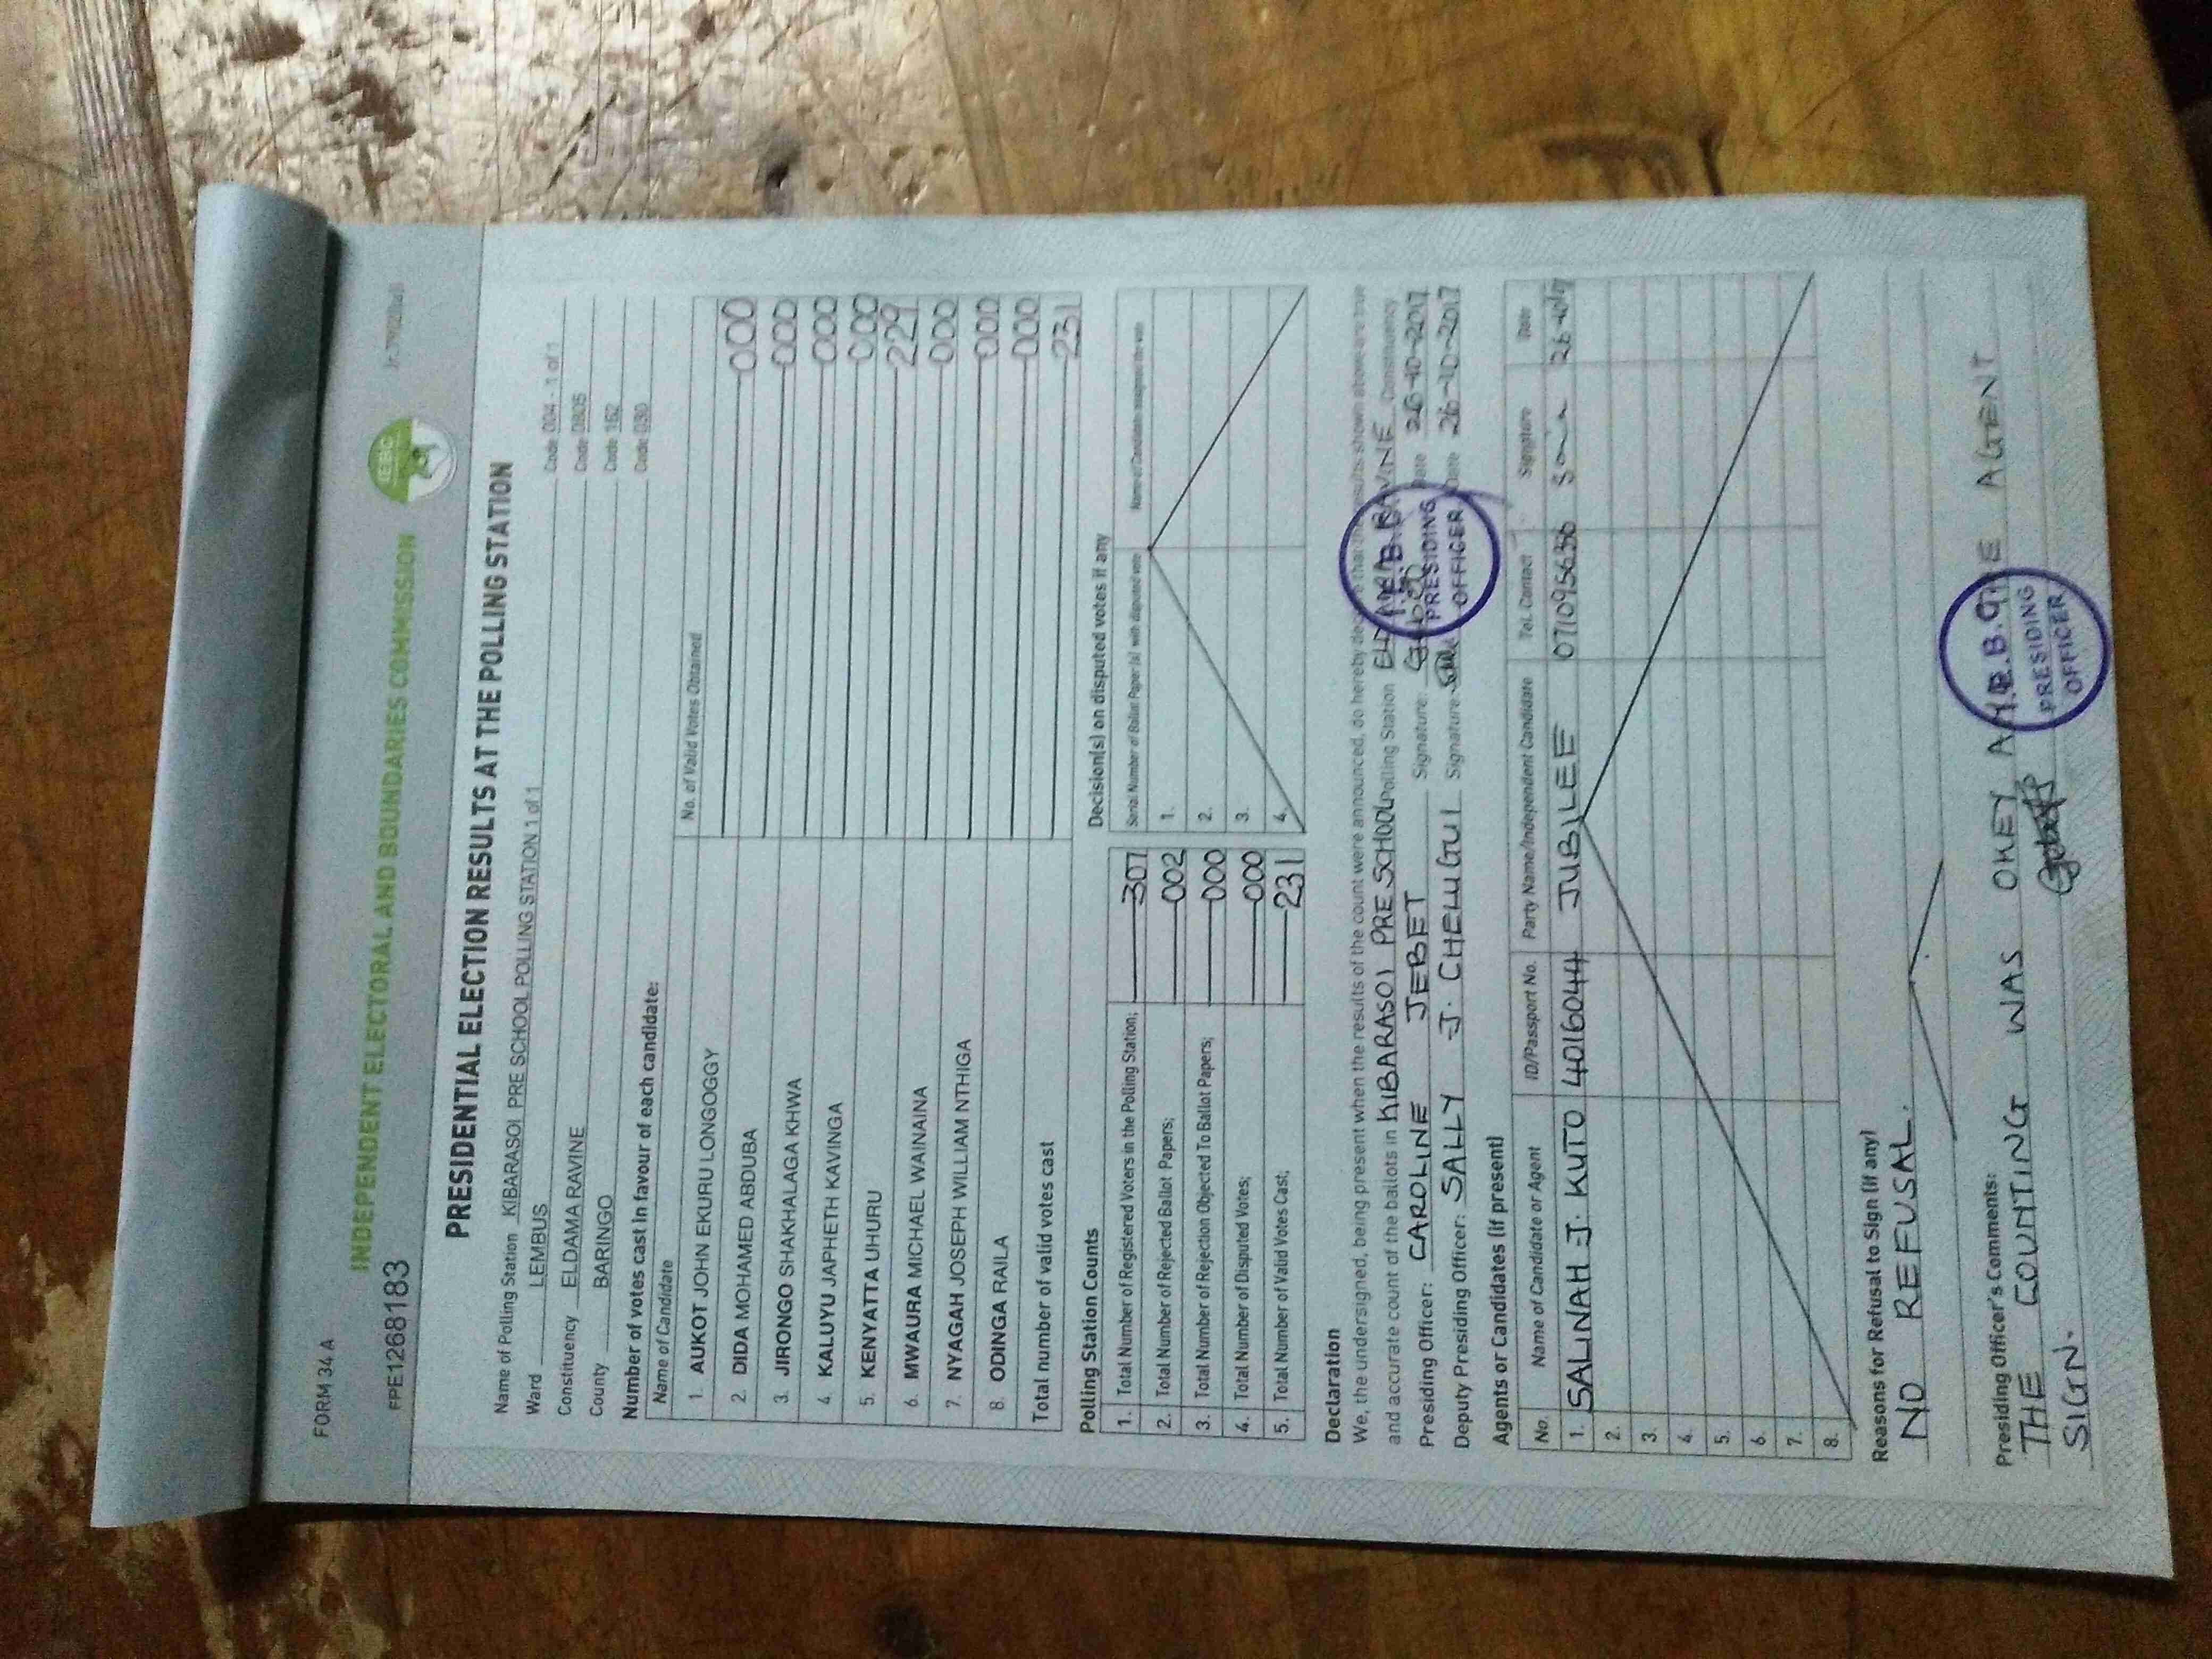 FORM 34 A
INDEPENDENT ELECTORAL AND BOUNDARIES COMMISSION
IEBC
FPE1268183
PRESIDENTIAL ELECTION RESULTS AT THE POLLING STATION
Name of Polling Station KIBARASOI PRE SCHOOL POLLING STATION 1 of 1 Code 004 - 1 of 1
Ward LEMBUS Code 0805
Constituency ELDAMA RAVINE Code 162
County BARINGO Code 030
Number of votes cast in favour of each candidate:
Name of Candidate No. of Valid Votes Obtained
1. AUKOT JOHN EKURU LONGOGGY 000
2. DIDA MOHAMED ABDUBA 000
3. JIRONGO SHAKHALAGA KHWA 000
4. KALUYU JAPHETH KAVINGA 000
5. KENYATTA UHURU 229
6. MWAURA MICHAEL WAINAINA 000
7. NYAGAH JOSEPH WILLIAM NTHIGA 000
8. ODINGA RAILA 000
Total number of valid votes cast 231
Polling Station Counts
1. Total Number of Registered Voters in the Polling Station; 307
2. Total Number of Rejected Ballot Papers; 002
3. Total Number of Rejection Objected To Ballot Papers; 000
4. Total Number of Disputed Votes; 000
5. Total Number of Valid Votes Cast; 231
Decision(s) on disputed votes if any
Serial Number of Ballot Paper (s) with disputed vote Name of Candidate assigned the vote
1.
2.
3.
4.
Declaration
We, the undersigned, being present when the results of the count were announced, do hereby declare that the results shown above are true
and accurate count of the ballots in KIBARASOI PRE SCHOOL Polling Station ELDAMA RAVINE Constituency
Presiding Officer: CAROLINE JEBET Signature: Date 26-10-2017
Deputy Presiding Officer: SALLY J. CHELUGUI Signature Date 26-10-2017
PRESIDING
OFFICER
Agents or Candidates (if present)
No. Name of Candidate or Agent ID/Passport No. Party Name/Independent Candidate Tel. Contact Signature Date
1. SALINAH J. KUTO 40160444 JUBLEE 0710956356 26-10/17
2.
3.
4.
5.
6.
7.
8.
Reasons for Refusal to Sign (if any)
NO REFUSAL.
Presiding Officer's Comments:
THE COUNTING WAS OKEY AGENT
SIGN.
PRESIDING
OFFICER